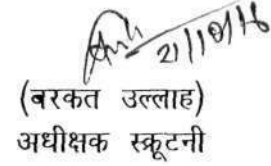 21/10/16
(बरकत उल्लाह)
अधीक्षक स्क्रूटनी